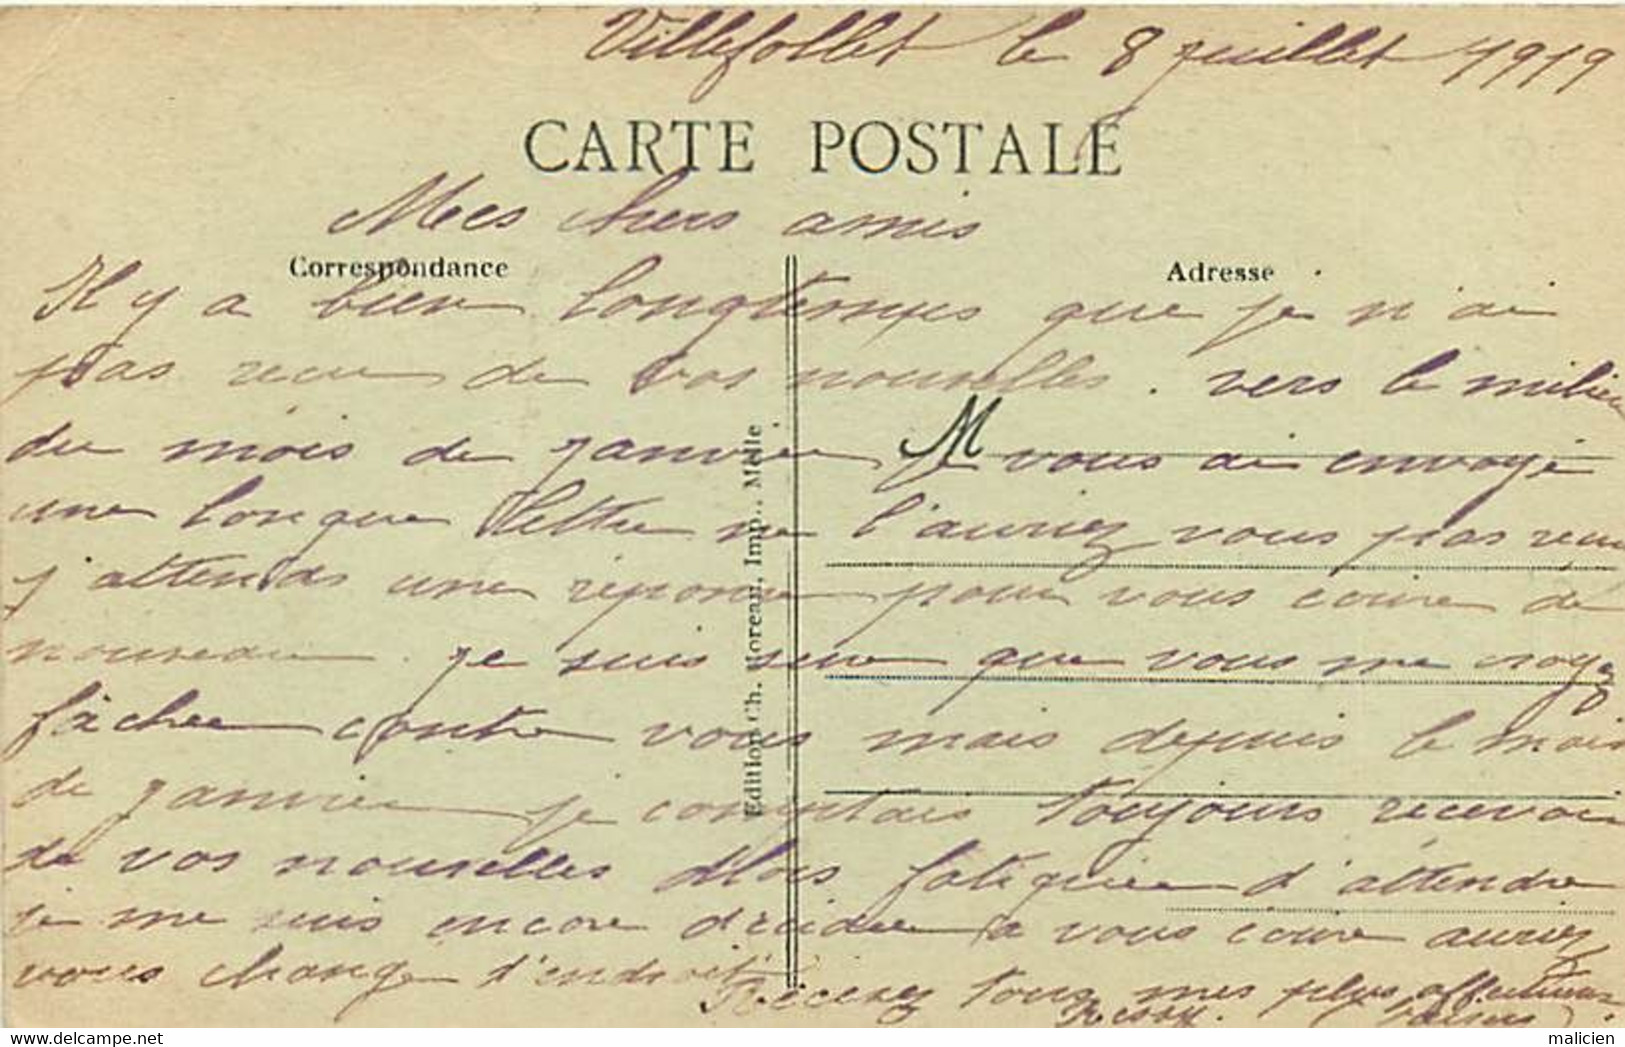 Villefollet le 8 juillet 1919
CARTE POSTALE
Mes chers amis
Correspondance
Adresse
Il y a bien longtemps que je n'ai
pas recu de vos nouvelles. vers le milieu
du mois de janvier je vous ai envoyé
M
une longue lettre ne l'auriez vous pas recu
j'attends une réponse pour vous ecrire de
nouveau. je suis sure que vous me croyez
fâchee contre vous mais depuis le mois
de janvier je comptais toujours recevoir
de vos nouvelles Alors fatiguée d'attendre
je me suis encore décidee a vous ecrire auriez
vous changer d'endroit Recevez tous mes plus affectueux
baisers
Edition Ch. Moreau, Imp., Melle
delcampe.net
malicien